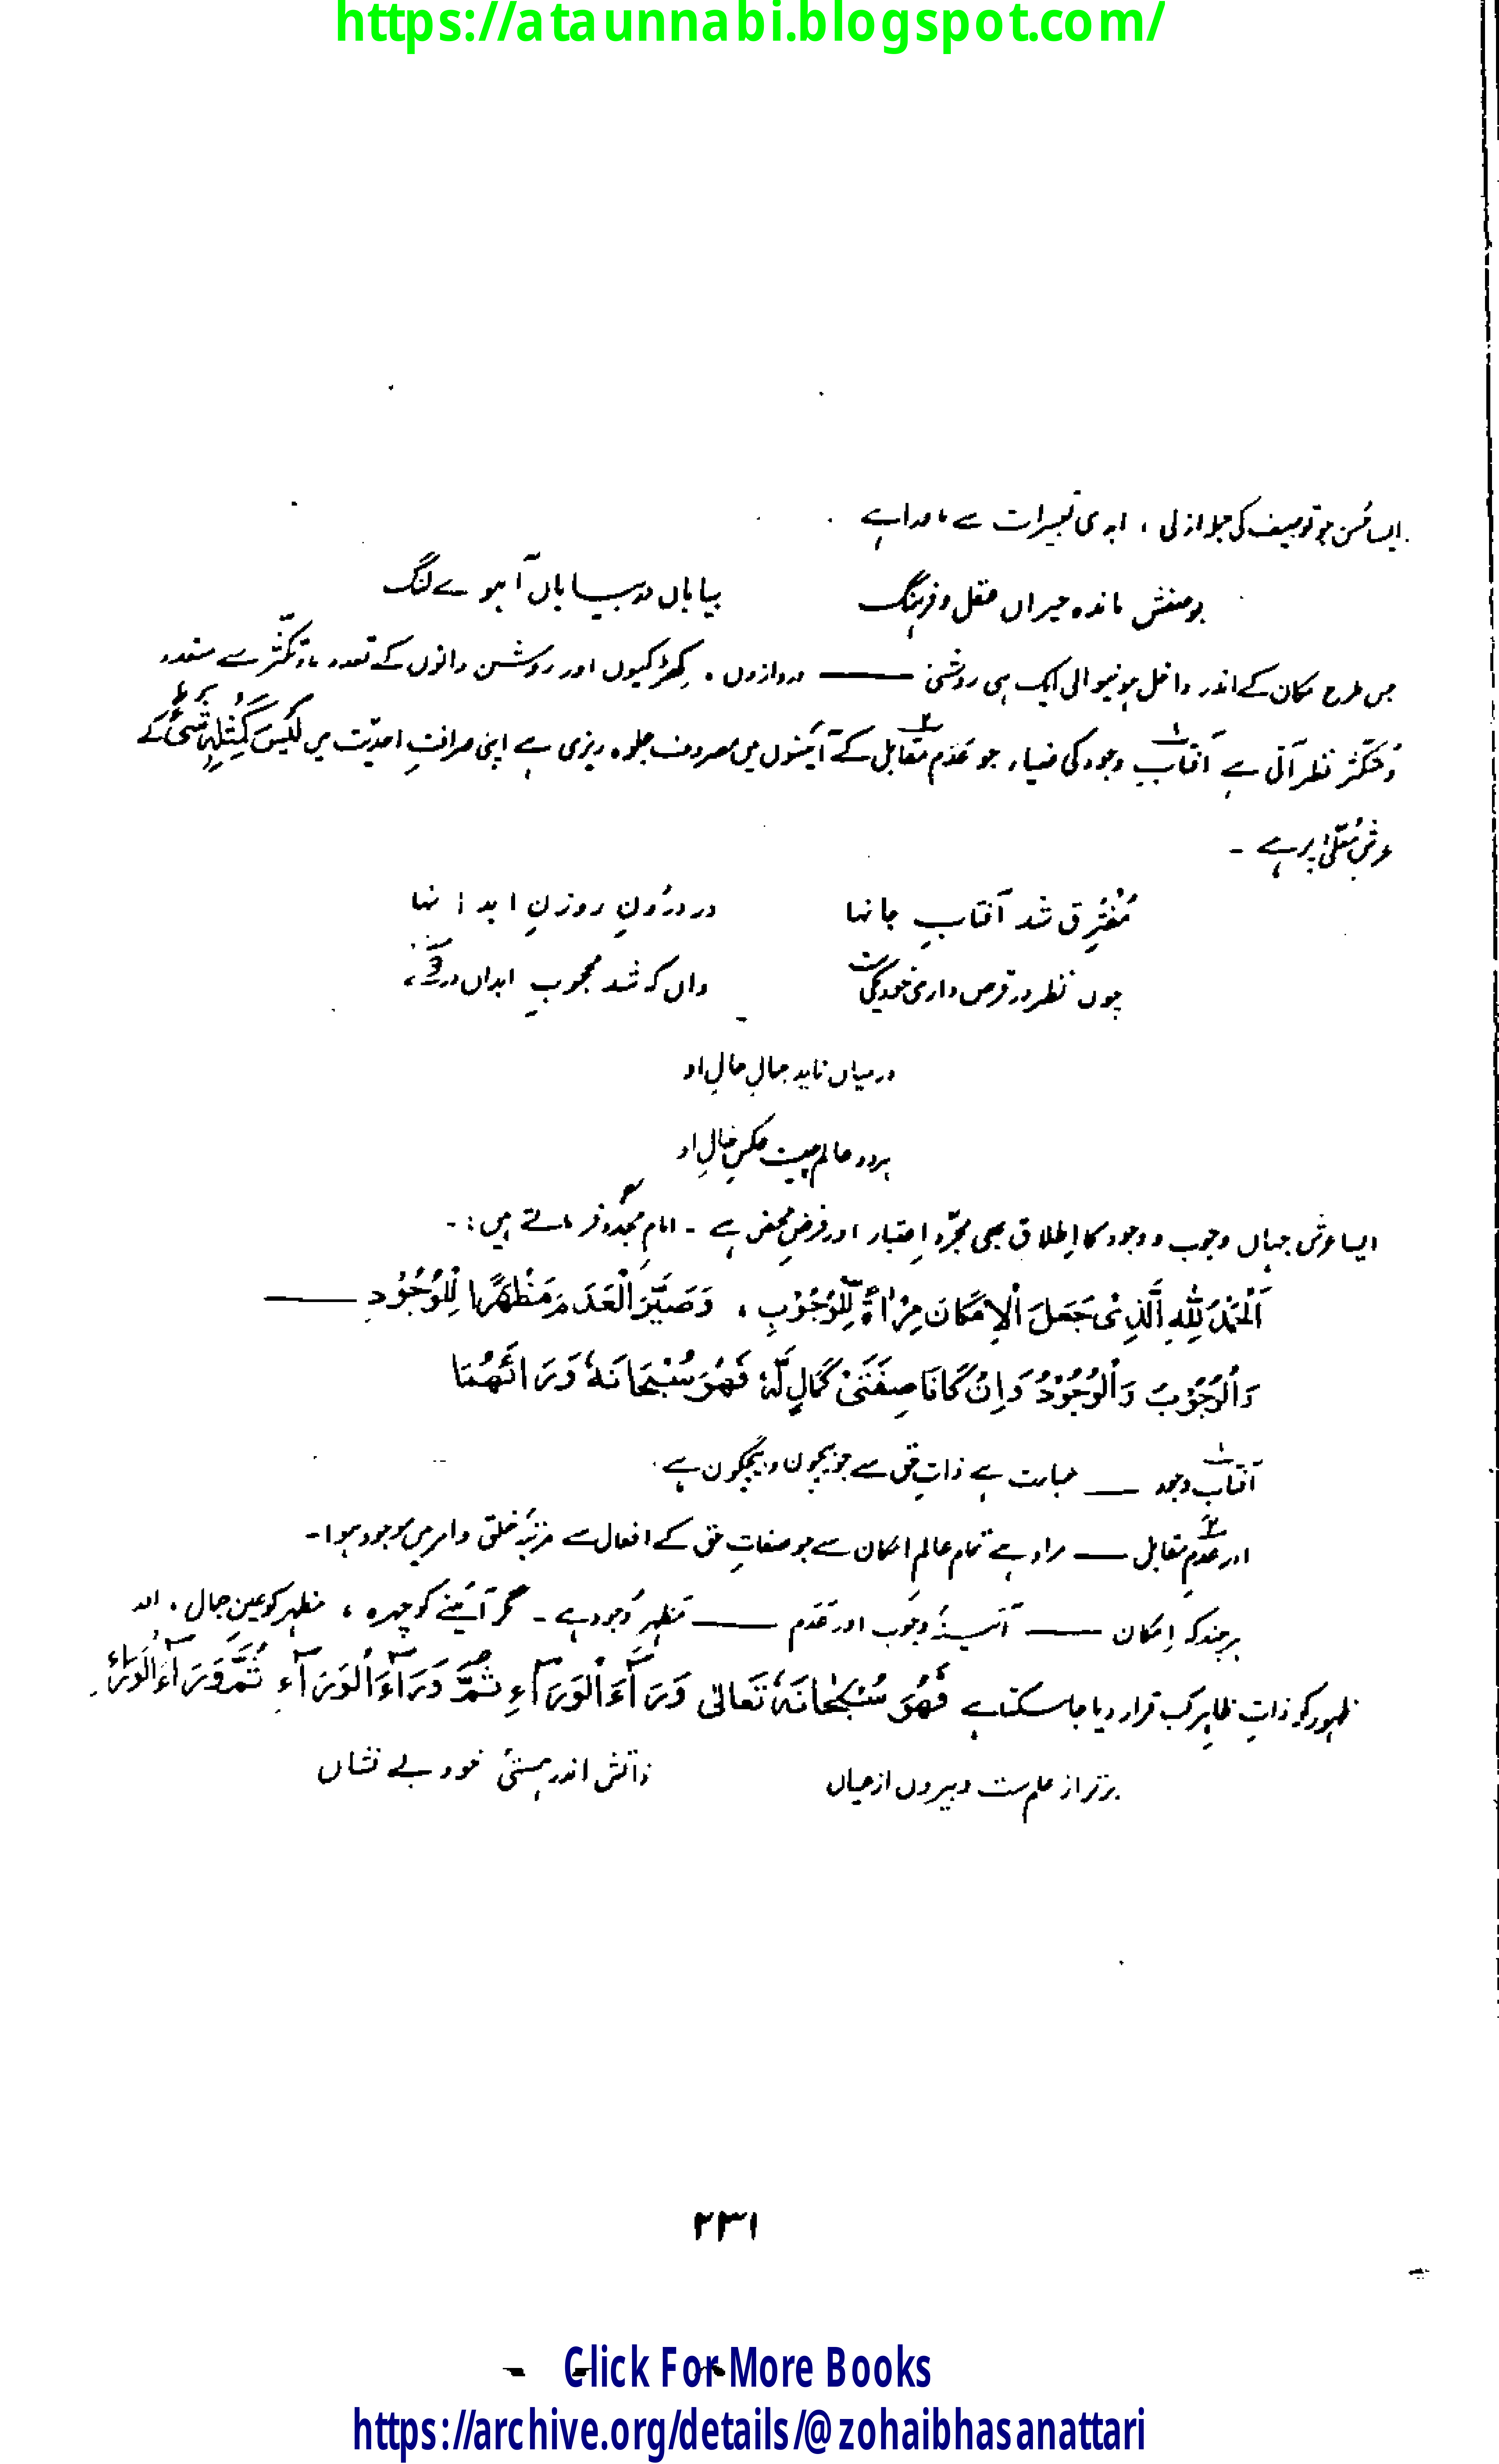 https://ataunnabi.blogspot.com/
ایسا حُسن جو توصیف کی جملہ ازلی ، ابدی تعبیرات سے ماورا ہے
بوصفش ماندہ حیراں عقل و فرہنگ بیاباں در بیاباں آہوے لنگ
جس طرح مکان کے اندر داخل ہونیوالی ایک ہی روشنی ــــــ دروازوں ، کھڑکیوں اور روشن دانوں کے تعدد و تکثّر سے متعدد
و متکثّر نظر آتی ہے آفتابِ۱ وجود کی ضیاء جو عَدَمِ مقابل۲ کے آئینوں میں مصروف جلوہ ریزی ہے اپنی صرافتِ احدیّت میں لَيْسَ كَمِثْلِهٖ شَيْءٌ کے
عرشِ مُعلّیٰ پر ہے ۔
مُفترِق شد آفتابِ جانہا در درُونِ روزنِ ابدانہا
چوں نظر در قرص داری خود یکیست واں کہ شد محجوبِ ابداں در
درمیاں ناید جمالِ حالِ او
ہر دو عالم چیست عکسِ خالِ او
ایسا عرش جہاں وجوب و وجود کا اِطلاق بھی مجرّد اِعتبار اور فرضِ محض ہے ۔ امامِ مجدّد فرماتے ہیں :۔
اَلْحَمْدُ لِلّٰهِ الَّذِيْ جَعَلَ الْاِمْكَانَ مِرْاٰةً لِّلْوُجُوْبِ ، وَصَيَّرَ الْعَدَمَ مَظْهَرًا لِلْوُجُوْدِ ــــــ
وَالْوُجُوْبُ وَالْوُجُوْدُ وَاِنْ كَانَا صِفَتَيْ كَمَالٍ لَّهٗ فَهُوَ سُبْحَانَهٗ وَرَائَهُمَا
آفتابِ۱ وجود ــــ عبارت ہے ذاتِ حق سے جو بیچون و بیچگون ہے
اور عدمِ۲ مقابل ــــ مراد ہے تمام عالمِ امکان سے جو صفاتِ حق کے افعال سے مرتبۂ خلق و امر میں موجود ہوا۔
ہرچند کہ اِمکان ــــــ آئینۂ وجُوب اور عَدَم ــــــ مَظہرِ وُجود ہے ۔ مگر آئینے کو چہرہ ، مظہر کو عینِ جمال ، اور
ظہور کو ذاتِ ظاہر کب قرار دیا جا سکتا ہے فَهُوَ سُبْحَانَهٗ تَعَالٰى وَرَآءَ الْوَرَآءِ ثُمَّ وَرَآءَ الْوَرَآءِ ثُمَّ وَرَآءَ الْوَرَآءِ
برتر از علم ست و بیروں از عیاں ذاتش اندر ہستیٔ خود بے نشاں
۲۳۱
Click For More Books
https://archive.org/details/@zohaibhasanattari